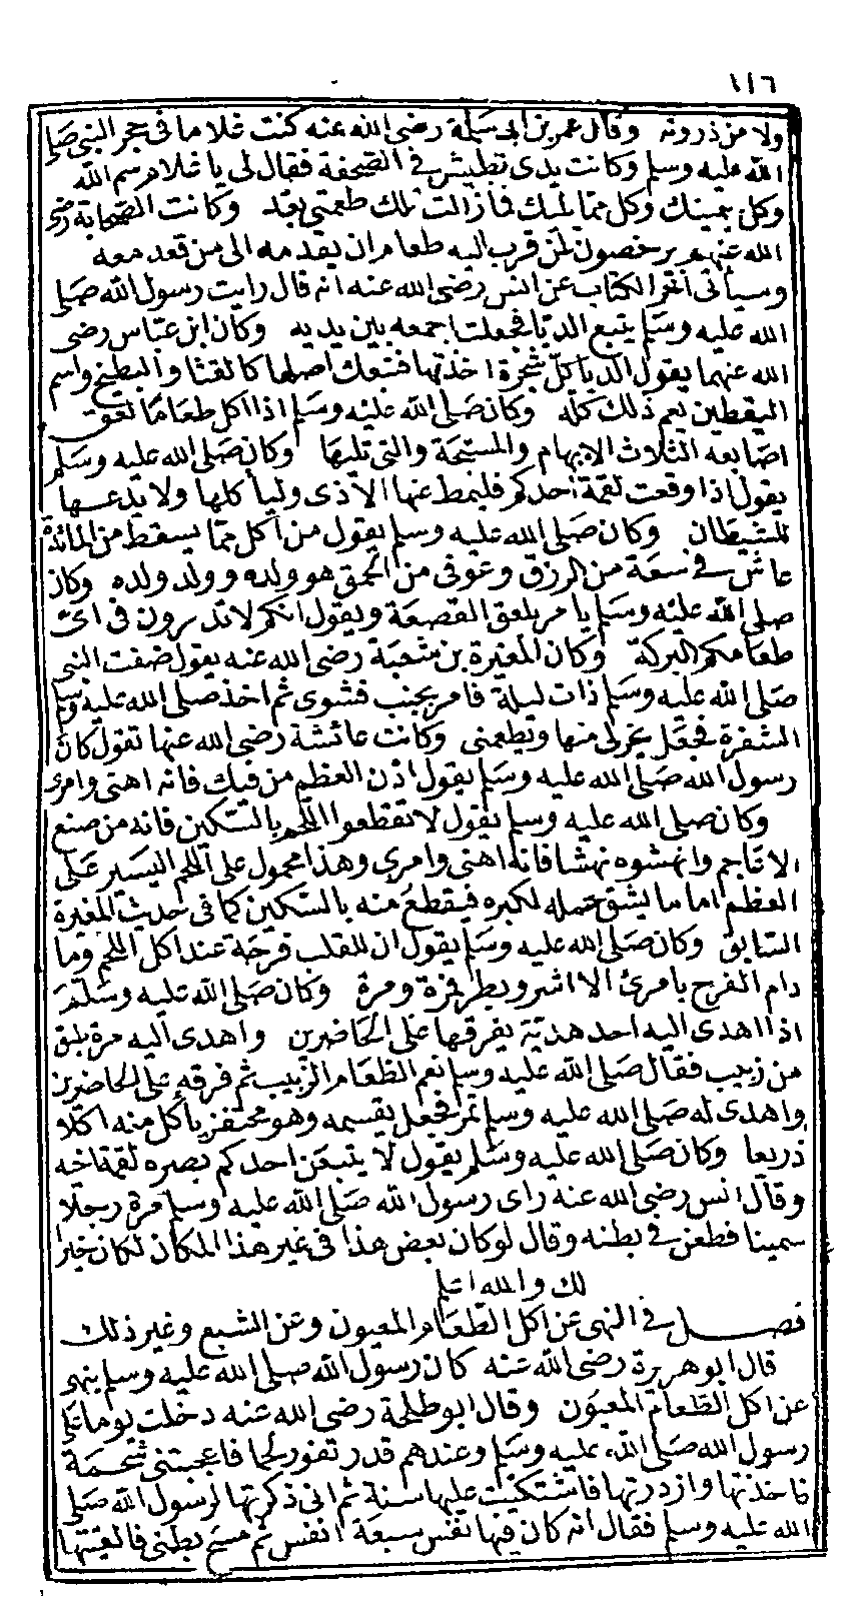 ١١٦
ولا من ذروته وقال عمر بن ابى سلمة رضى الله عنه كنت غلاما فى حجر النبى صلى
الله عليه وسلم وكانت يدى تطيش فى الصحفة فقال لى يا غلام سم الله
وكل بيمينك وكل مما يليك فما زالت تلك طعمتى بعد وكانت الصحابة رضى
الله عنهم يرخصون لمن قرب اليه طعام ان يقدمه الى من قعد معه
وسيأتى آخر الكتاب عن انس رضى الله عنه انه قال رايت رسول الله صلى
الله عليه وسلم يتبع الدبا فجعلت اجمعه بين يديه وكان ابن عباس رضى
الله عنهما يقول الدبا كل شجرة اخذتها فتبعك اصلها كالقثا والبطيخ واسم
اليقطين يعم ذلك كله وكان صلى الله عليه وسلم اذا اكل طعاما لعق
اصابعه الثلاث الابهام والمسبحة والتى تليها وكان صلى الله عليه وسلم
يقول اذا وقعت لقمة احدكم فليمط عنها الاذى وليأكلها ولا يدعها
للشيطان وكان صلى الله عليه وسلم يقول من اكل مما يسقط من المائدة
عاش فى سعة من الرزق وعوفى من الحمق هو وولده وولد ولده وكان
صلى الله عليه وسلم يامر بلعق القصعة ويقول انكم لا تدرون فى اى
طعامكم البركة وكان المغيرة بن شعبة رضى الله عنه يقول ضفت النبى
صلى الله عليه وسلم ذات ليلة فامر بجنب فشوى ثم اخذ صلى الله عليه وسلم
الشفرة فجعل يحز لى منها ويطعمنى وكانت عائشة رضى الله عنها تقول كان
رسول الله صلى الله عليه وسلم يقول ادن العظم من فيك فانه اهنى وامرى
وكان صلى الله عليه وسلم يقول لا تقطعوا اللحم بالسكين فانه من صنع
الاعاجم وانهشوه نهشا فانه اهنى وامرى وهذا محمول على اللحم اليسير على
العظم اما ما يشق حمله لكبره فيقطع منه بالسكين كما فى حديث المغيرة
السابق وكان صلى الله عليه وسلم يقول ان للقلب فرحة عند اكل اللحم وما
دام الفرح بامرئ الا اشر وبطر فمرة ومرة وكان صلى الله عليه وسلم
اذا اهدى اليه احد هدية يفرقها على الحاضرين واهدى اليه مرة طبق
من زبيب فقال صلى الله عليه وسلم نعم الطعام الزبيب ثم فرقه على الحاضرين
واهدى له صلى الله عليه وسلم تمر فجعل يقسمه وهو محتفز يأكل منه اكلا
ذريعا وكان صلى الله عليه وسلم يقول لا يتبعن احدكم بصره لقمة اخيه
وقال انس رضى الله عنه راى رسول الله صلى الله عليه وسلم مرة رجلا
سمينا فطعن فى بطنه وقال لو كان بعض هذا فى غير هذا المكان لكان خيرا
لك والله اعلم
فصل فى النهى عن اكل الطعام المعيون وعن الشبع وغير ذلك
قال ابو هريرة رضى الله عنه كان رسول الله صلى الله عليه وسلم ينهى
عن اكل الطعام المعيون وقال ابو طلحة رضى الله عنه دخلت يوما على
رسول الله صلى الله عليه وسلم وعندهم قدر تفور لحما فاعجبتنى شحمة
فاخذتها وازدردتها فاشتكيت عليها سنة ثم انى ذكرتها لرسول الله صلى
الله عليه وسلم فقال انه كان فيها نفس سبعة انفس ثم مسح بطنى فالقيتها